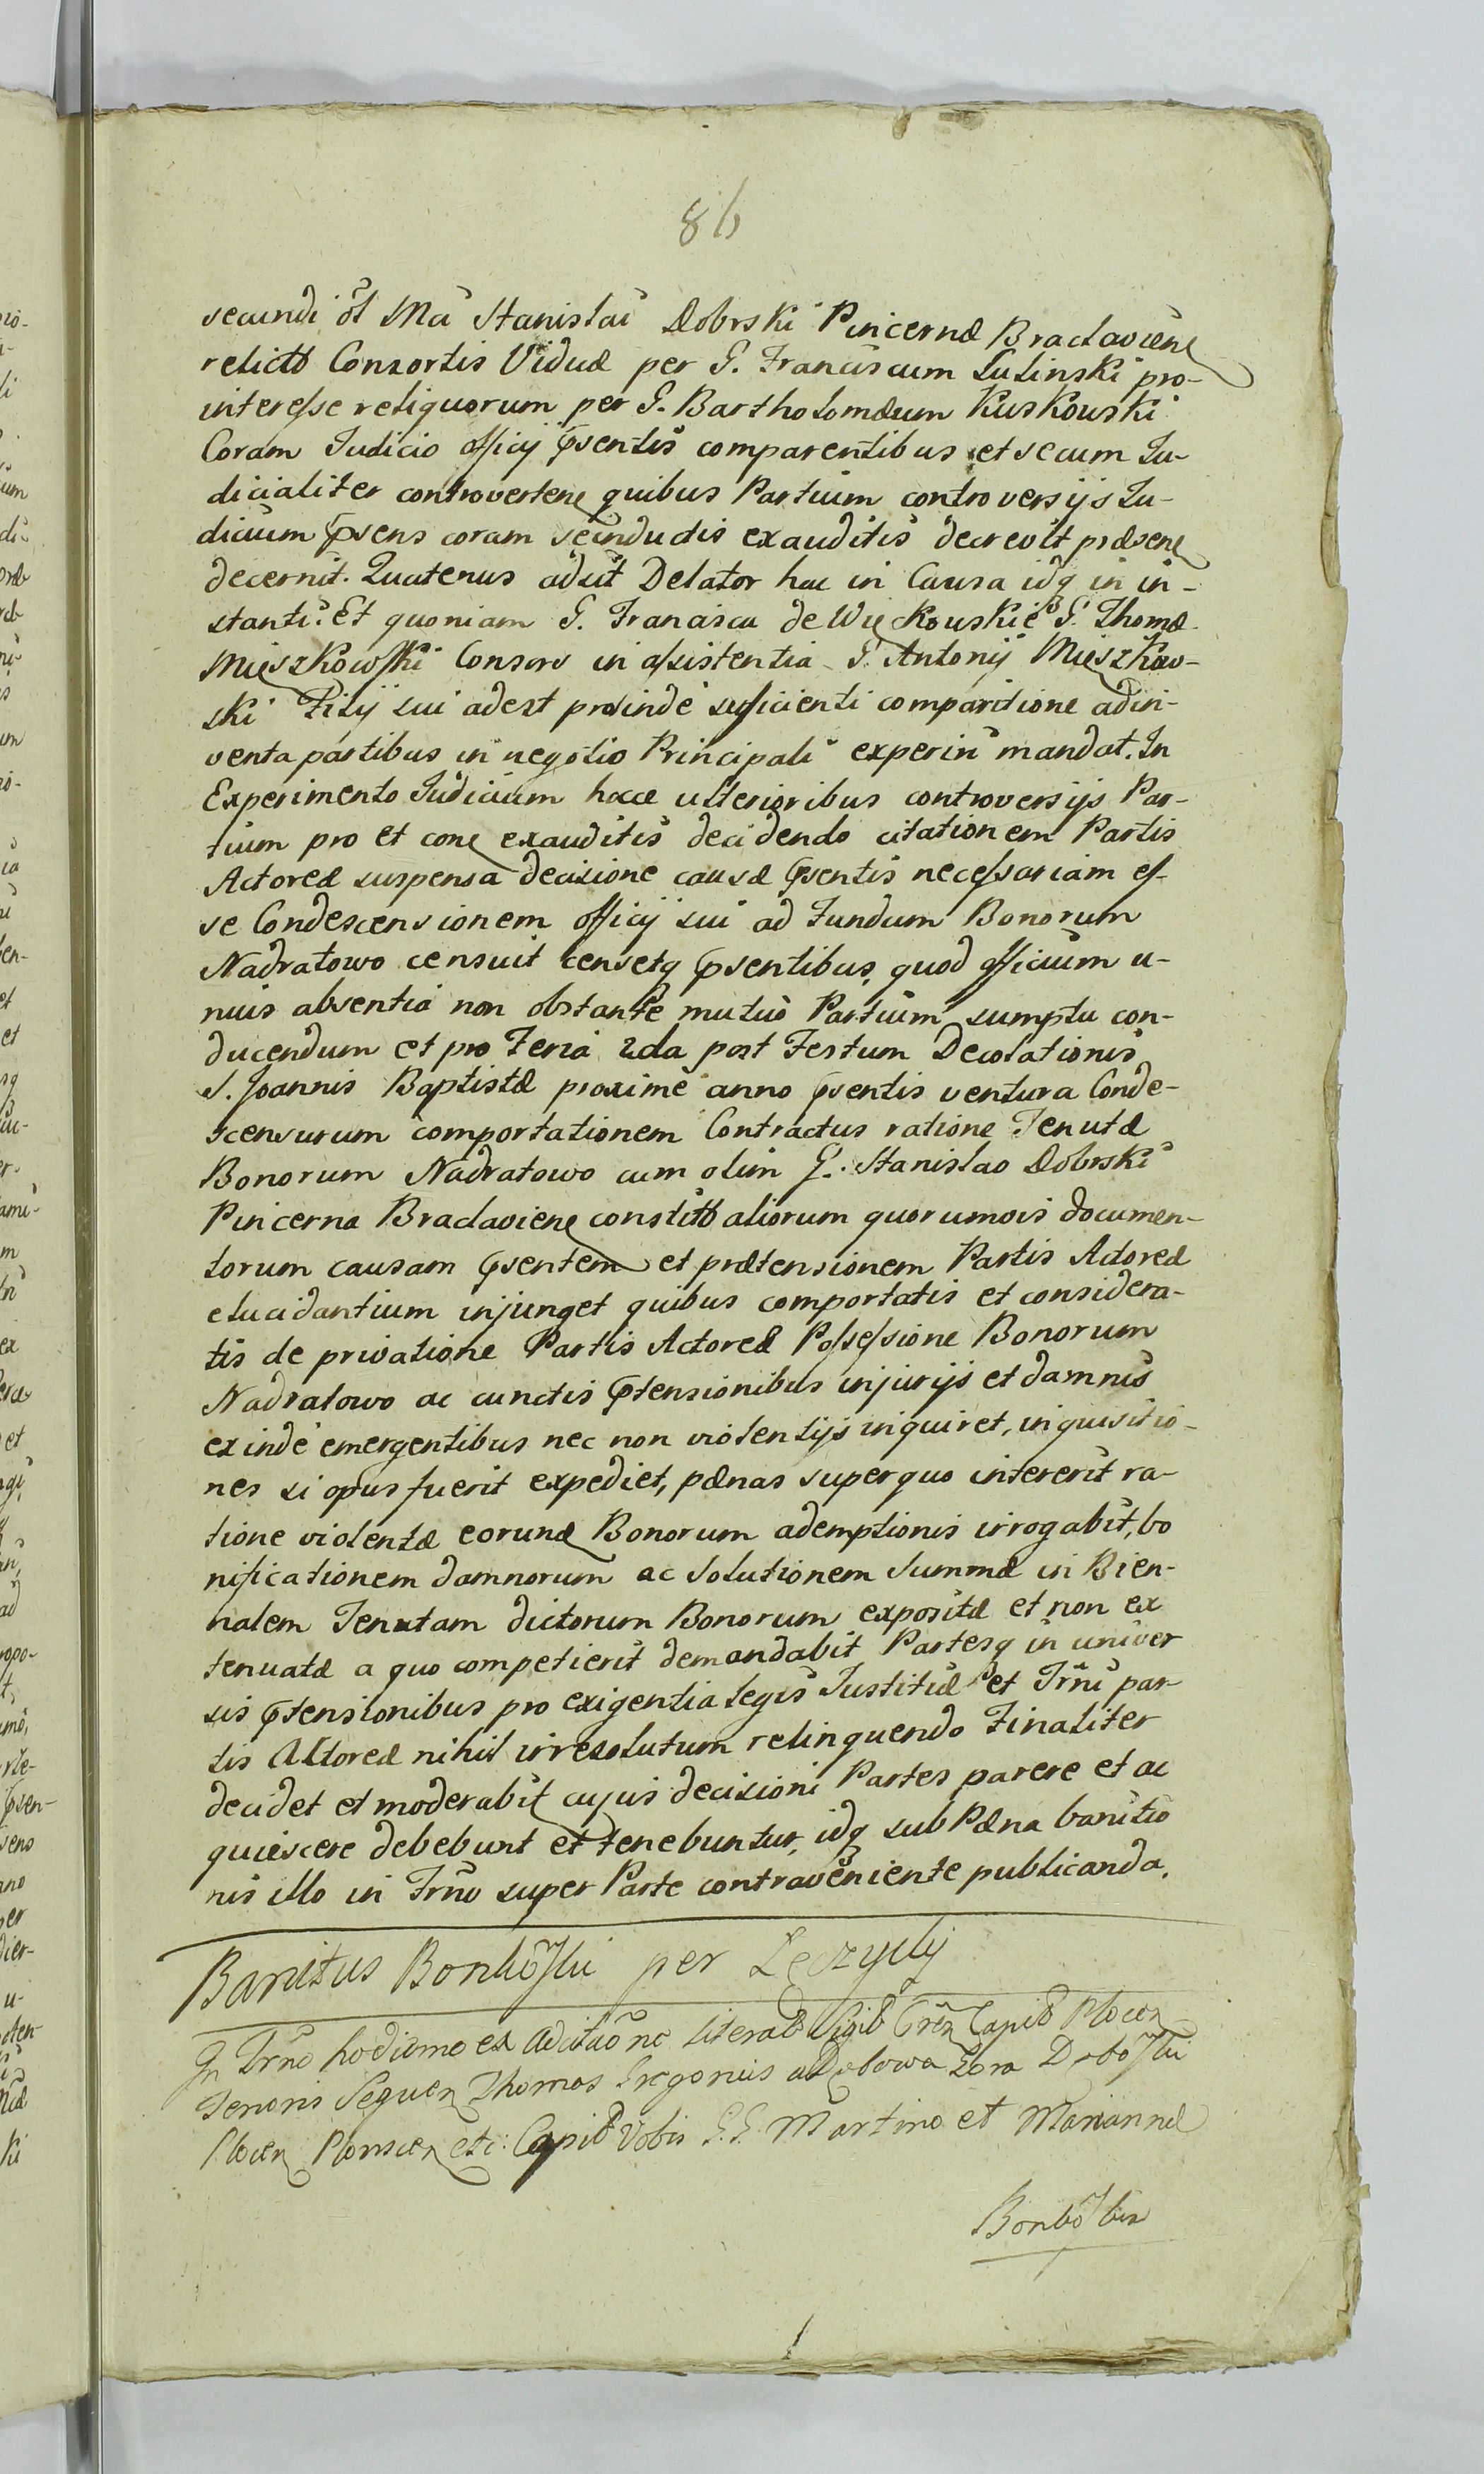 86
secundi ol Ma Stanislai Dobrski Pincernæ Braclavien
relictæ Consortis Viduæ per G. Franciscum Lulinski pro-
interesse reliquorum per G. Bartholomæum Kuskowski
Coram Judicio officij præsentis comparentibus et secum Ju-
dicialiter controverten quibus Partium controversijs Ju-
dicium præsens coram se inductis exauditis decrevit præsen
decernit. Quatenus adsit Delator hac in Causa idq in in-
stanti. Et quoniam G. Francisca de Więckowskie G. Thomæ
Mieszkowski Consors in assistentia G. Antonij Mieszkow-
ski Filij sui adest proinde sufficienti comparitione adin-
venta partibus in negotio Principali experiri mandat. In
Experimento Judicium hocce ulterioribus controversijs Par-
tium pro et con exauditis decidendo citationem Partis
Actoreæ suspensa decisione causæ præsentis necessariam es-
se Condescensionem officij sui ad Fundum Bonorum
Nadratowo censuit censetq præsentibus, quod officium u-
nius absentia non obstante mutuo Partium sumptu con-
ducendum et pro Feria 2da post Festum Decolationis
S. Joannis Baptistæ proxime anno præsentis ventura Conde-
scensurum comportationem Contractus ratione Tenutæ
Bonorum Nadratowo cum olim G. Stanislao Dobrski
Pincerna Braclavien constit aliorum quorumvis documen-
torum causam præsentem et prætensionem Partis Actoreæ
elucidantium injunget quibus comportatis et considera-
tis de privatione Partis Actoreæ Possessione Bonorum
Nadratowo ac cunctis prætensionibus injurijs et damnis
exinde emergentibus nec non violentijs inquiret, inquisitio-
nes si opus fuerit expediet, pænas super quo intererit ra-
tione violentæ eorund Bonorum ademptionis irrogabit, bo
nificationem damnorum ac Solutionem Summæ in Bien-
nalem Tenutam dictorum Bonorum expositæ et non ex
tenuatæ a quo competierit demandabit Partesq in univer
sis prætensionibus pro exigentia legis Justitiæ et Trni par-
tis Actoreæ nihil irresolutum relinquendo Finaliter
decidet et moderabit cujus decisioni Partes parere et ac
quiescere debebunt et tenebuntur, idq sub Pæna banitio
nis illo in Trno super Parte contraveniente publicanda.
Banitus Bonkoski per Leszycly
In Trno hodierno ex Citaone literali Capit Plocen
Tenoris Sequen Thomas Gregorius a Dębowa Gora Deboski
Plocen Plonscen etc: Capit Vobis G.G. Martino et Mariannæ
Bonko